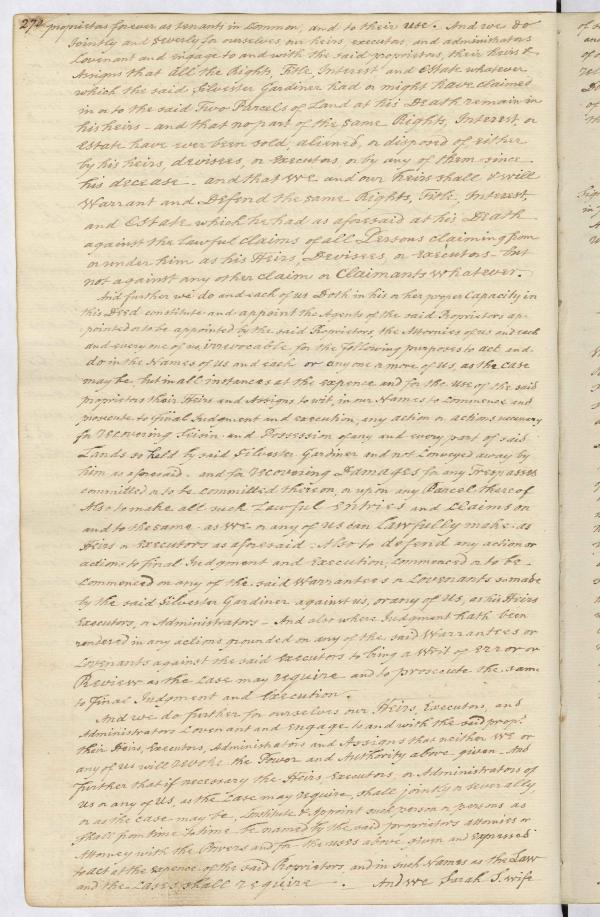 272 proprietors forever as tenants in Common, and to their use. And we do
Jointly and severly for ourselves, our heirs, executors, and administrators
Covenant and engage to and with the said proprietors, their heirs &
Assigns that all the Rights, Title, Interest and Estate whatever
which the said Silvester Gardiner had or might have claimed
in or to the said Two Parcels of Land at his Death remain in
his heirs - and that no part of the same Rights, Interest, or
Estate have ever been sold, aliened, or disposed of either
by his heirs, devisees, or Executors, or by any of them since
his decease - and that we and our heirs shall & will
Warrant and Defend the same Rights, Title, Interest,
and Estate which he had as aforesaid at his Death
against the lawful claims of all Persons claiming from
or under him as his Heirs, Devisees, or Executors - but
not against any other claim or Claimants whatever.
And further we do and each of us Doth in his or her proper Capacity in
this Deed constitute and appoint the Agents of the said Proprietors ap-
pointed or to be appointed by the said Proprietors, the Attornies of us and each
and every one of us, irrevocable for the following purposes to act and
do in the Names of us and each or any one or more of us, as the case
may be, but in all instances at the expence and for the use of the said
proprietors their Heirs and Assigns to wit, in our Names to Commence and
prosecute to final Judgment and execution, any action or actions necessary
for recovering Seisin and Possession of any and every part of said
Lands so held by said Silvester Gardiner and not Conveyed away by
him as aforesaid - and for recovering Damages for any Trespasses
committed or to be committed thereon, or upon any Parcel thereof
Also to make all such Lawful Entries and Claims on
and to the same - as we or any of us can Lawfully make as
Heirs or Executors as aforesaid - Also to defend any action or
actions to final Judgment and Execution, Commenced or to be
Commenced on any of the said Warrantees or Covenants made
by the said Silvester Gardiner against us, or any of us, as his Heirs
Executors, or Administrators - And also where Judgment hath been
rendered in any actions grounded on any of the said Warrantees or
Covenants against the said Executors to bring a Writ of Error or
Review as the Case may require and to prosecute the same
to final Judgment and Execution.
And we do further for ourselves our Heirs, Executors, and
Administrators Covenant and Engage to and with the said prop.
their Heirs, Executors, Administrators and Assigns that neither we or
any of us will revoke the Power and Authority above given - And
further that if necessary the Heirs, Executors, or Administrators of
us or any of us, as the Case may require, shall jointly or severally
or as the case may be, Constitute & Appoint such person or persons as
shall from time to time be named by the said proprietors attornies or
Attorney with the Powers and for the uses above given and expressed
to act at the expence of the said Proprietors, and in such Names as the Law
and the Cases shall require. And we Sarah S. wife